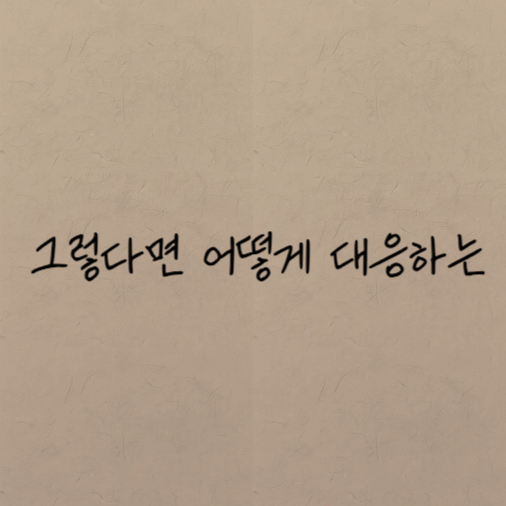 그렇다면 어떻게 대응하는